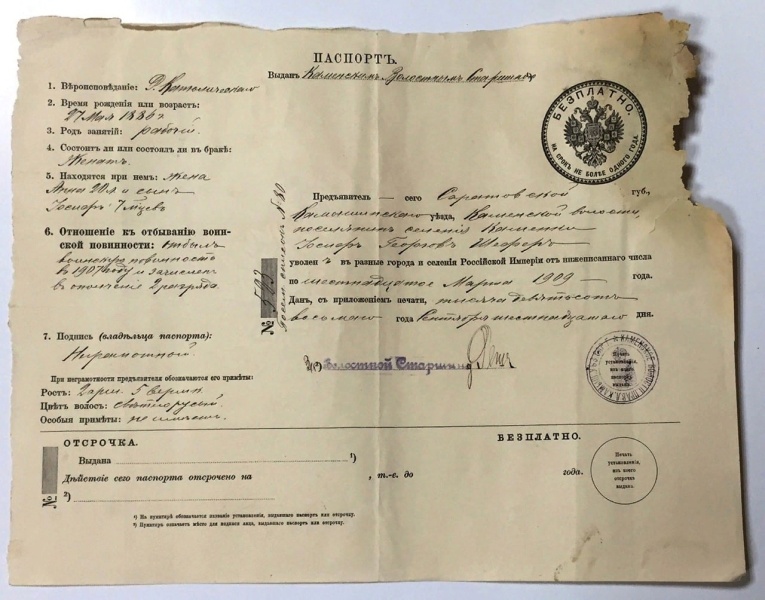 ПАСПОРТЪ.
Выданъ Каменскимъ Волостнымъ Старшиной
1. Вѣроисповѣданіе: Р. Католическаго
2. Время рожденія или возрастъ:
27 Мая 1886 г.
3. Родъ занятій: рабочій.
4. Состоитъ ли или состоялъ ли въ бракѣ:
Женатъ.
5. Находятся при немъ: жена
Анна 20 л и сынъ
Госпаръ 7 мѣсяц.
6. Отношеніе къ отбыванію воин-
ской повинности: отбылъ
воинскую повинность
въ 1907 году и зачисленъ
въ ополченіе 2 разряда.
7. Подпись (владѣльца паспорта):
Неграмотный.
При неграмотности предъявителя обозначаются его примѣты:
Ростъ: 2 арш. 5 верш.
Цвѣтъ волосъ: свѣтлорусый.
Особыя примѣты: не имѣетъ.
БЕЗПЛАТНО.
НА СРОКЪ НЕ БОЛѢЕ ОДНОГО ГОДА.
№ 503
Предъявитель — сего Саратовской губ.,
Камышинскаго уѣзда, Каменской волости,
поселянинъ селенія Каменки
Госпаръ Георговъ Шеферъ
уволенъ въ разные города и селенія Россійской Имперіи отъ нижеписаннаго числа
по шестнадцатое Марта 1909 года.
Данъ, съ приложеніемъ печати, тысяча девятьсотъ
восьмаго года Сентября шестнадцатаго дня.
Волостной Старшина
Печать установленія, изъ коего паспортъ выданъ.
ОТСРОЧКА.
БЕЗПЛАТНО.
Выдана ¹)
Дѣйствіе сего паспорта отсрочено на , т.-е. до года.
²)
№
Печать
установленія,
изъ коего
отсрочка
выдана.
¹) На пунктирѣ обозначается названіе установленія, выдавшаго паспортъ или отсрочку.
²) Пунктиръ означаетъ мѣсто для подписи лица, выдавшаго паспортъ или отсрочку.